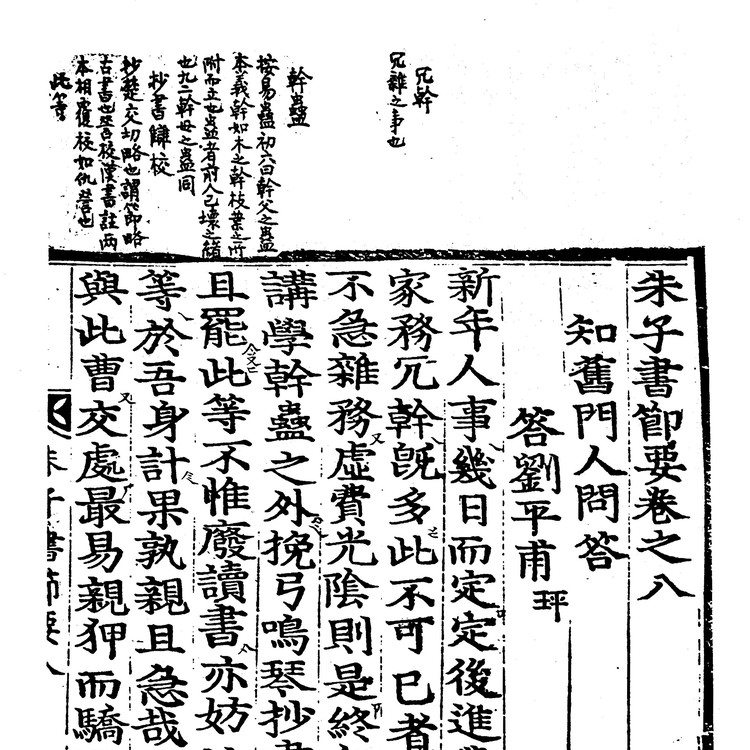 冗幹
冗雜之事也
幹蠱
按易蠱初六曰幹父之蠱
本義幹如木之幹枝葉之所
附而立也蠱者前人已壞之緒
也九二幹母之蠱同
抄書讎校
抄楚交切略也謂節略
古書也
本相覆校如仇讎也
朱子書節要卷之八
知舊門人問答
答劉平甫 玶
新年人事幾日而定定後進
家務冗幹旣多此不可已者
不急雜務虛費光陰則是終
講學幹蠱之外挽弓鳴琴抄書
且罷此等不惟廢讀書亦妨
等於吾身計果孰親且急哉
與此曹交處最易親狎而驕
朱子書節要八